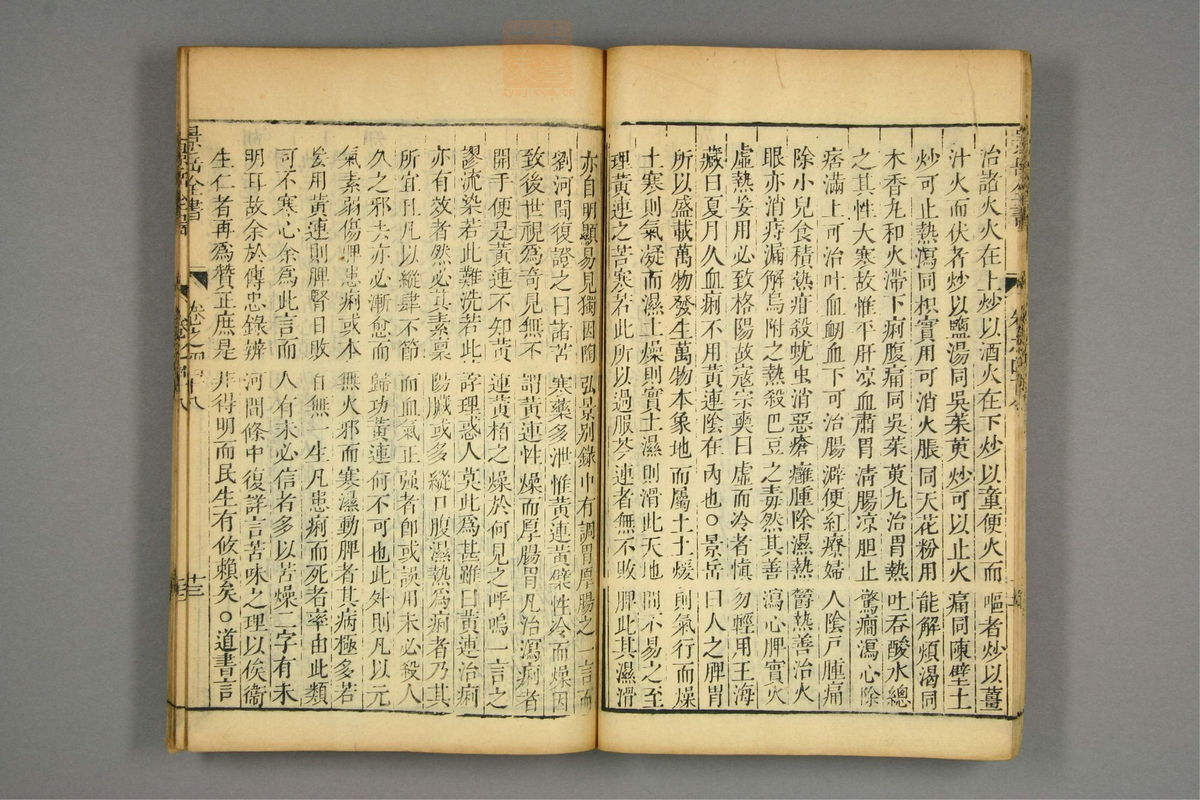 治諸火火在上炒以酒火在下炒以童便火而嘔者炒以薑
汁火而伏者炒以鹽湯同吳茱萸炒可以止火痛同陳壁土
炒可止熱瀉同枳實用可消火脹同天花粉用能解煩渴同
木香丸和火滯下痢腹痛同吳茱萸丸治胃熱吐吞酸水總
之其性大寒故惟平肝凉血肅胃清腸凉胆止驚癇瀉心除
痞滿上可治吐血衂血下可治腸澼便紅療婦人陰戶腫痛
除小兒食積熱疳殺蚘虫消惡瘡癰腫除濕熱欝熱善治火
眼亦消痔漏解烏附之熱殺巴豆之毒然其善瀉心脾實火
虛熱妄用必致格陽故寇宗奭曰虛而冷者慎勿輕用王海
藏曰夏月久血痢不用黃連陰在內也〇景岳曰人之脾胃
所以盛載萬物發生萬物本象地而屬土土煖則氣行而燥
土寒則氣凝而濕土燥則實土濕則滑此天地間不易之至
理黃連之苦寒若此所以過服芩連者無不敗脾此其濕滑
亦自明顯易見獨因陶弘景別錄中有調胃厚腸之一言而
劉河間復證之曰諸苦寒藥多泄惟黃連黃蘗性冷而燥因
致後世視為奇見無不謂黃連性燥而厚腸胃凡治瀉痢者
開手便是黃連不知黃連黃栢之燥於何見之呼嗚一言之
謬流染若此難洗若此悖理惑人莫此為甚雖曰黃連治痢
亦有效者然必其素禀陽臟或多縱口腹濕熱為痢者乃其
所宜且凡以縱肆不節而血氣正强者卽或誤用未必殺人
久之邪去亦必漸愈而歸功黃連何不可也此外則凡以元
氣素弱傷脾患痢或本無火邪而寒濕動脾者其病極多若
妄用黃連則脾腎日敗百無一生凡患痢而死者率由此類
可不寒心余為此言而人有未必信者多以苦燥二字有未
明耳故余於傳忠錄辨河間條中復詳言苦味之理以俟衞
生仁者再為贊正庶是非得明而民生有攸賴矣〇道書言
景岳全書
卷之四十八